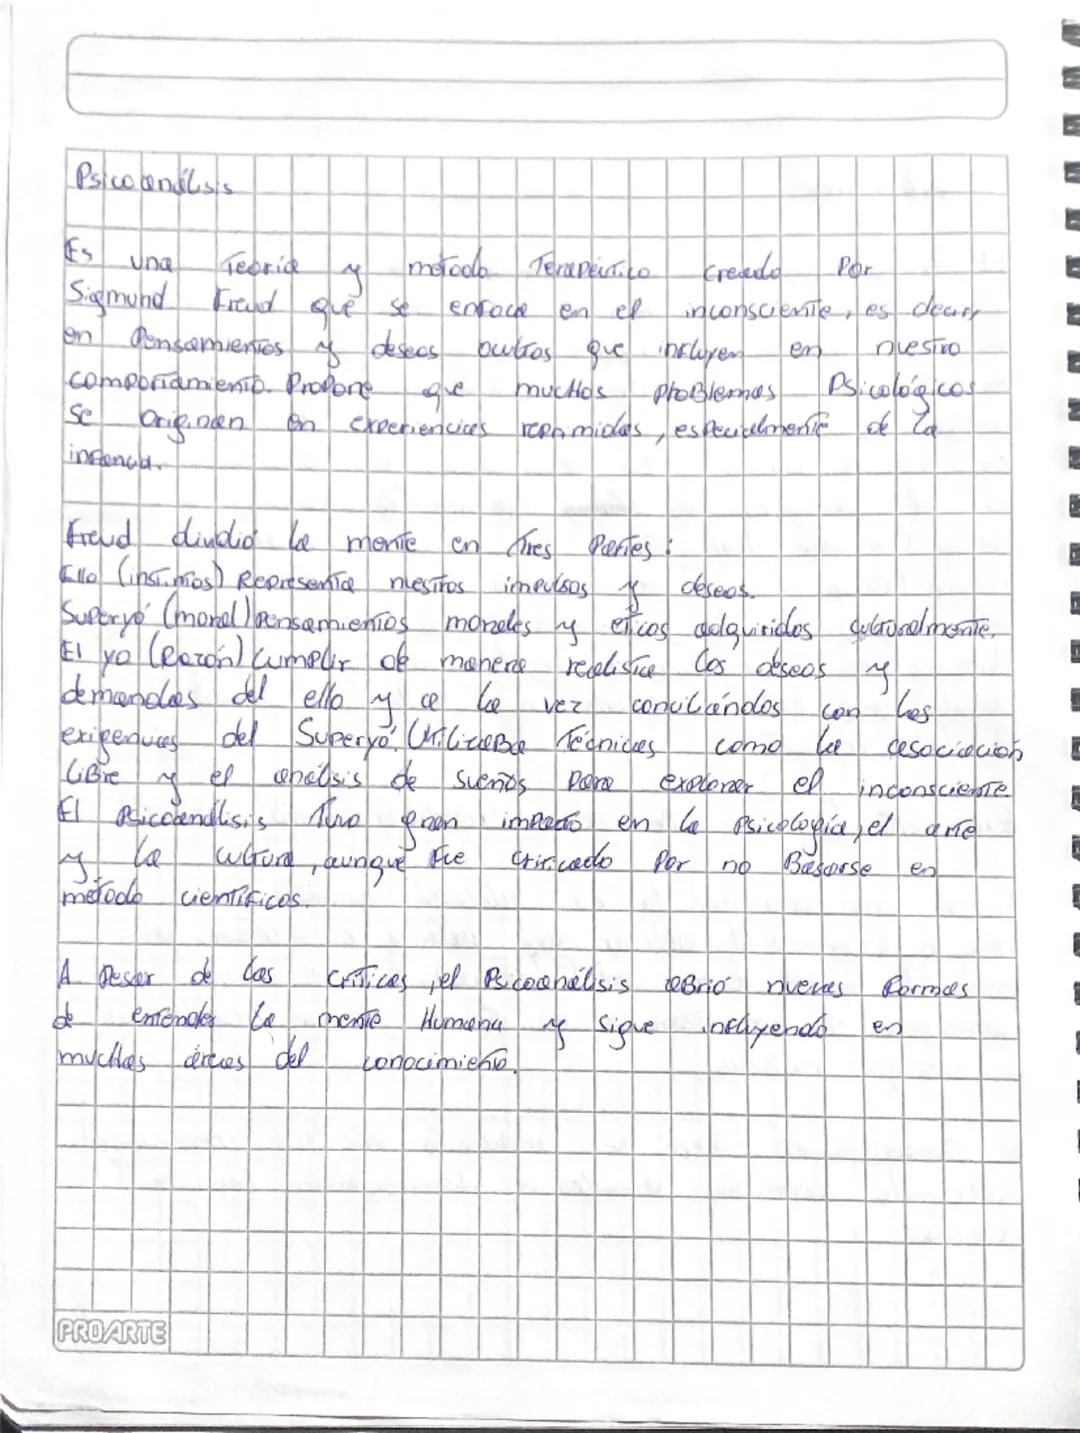 Psicoanálisis
Es una Teoria y metodo Terapéutico creado Por
Sigmund Freud que se enfoca en el inconsciente, es decir,
en Pensamientos y deseos ocultos que influyen en nuestro
comportamiento. Propone que muchos problemas Psicológicos
se Originan en experiencias reprimidas, especialmente de la
infancia.
Freud dividio la mente en Tres Partes:
Ello (instintos) Representa nuestros impulsos y deseos.
Superyó (moral) Pensamientos morales y eticos adquiridos culturalmente.
El yo (Razón) Cumplir de manera realista los deseos y
demandas del ello y a la vez conciliándolos con las
exigencias del Superyó. Utilizaba Técnicas como la asociación
libre y el analisis de sueños para explorar el inconsciente
El Psicoanálisis Tuvo gran impacto en la Psicología, el arte
y la cultura, aunque fue criticado Por no Basarse en
metodo cientificos.
A Pesar de las criticas, el Psicoanálisis abrió nuevas formas
de entender la mente Humana y sigue influyendo en
muchas áreas del conocimiento.
PROARTE